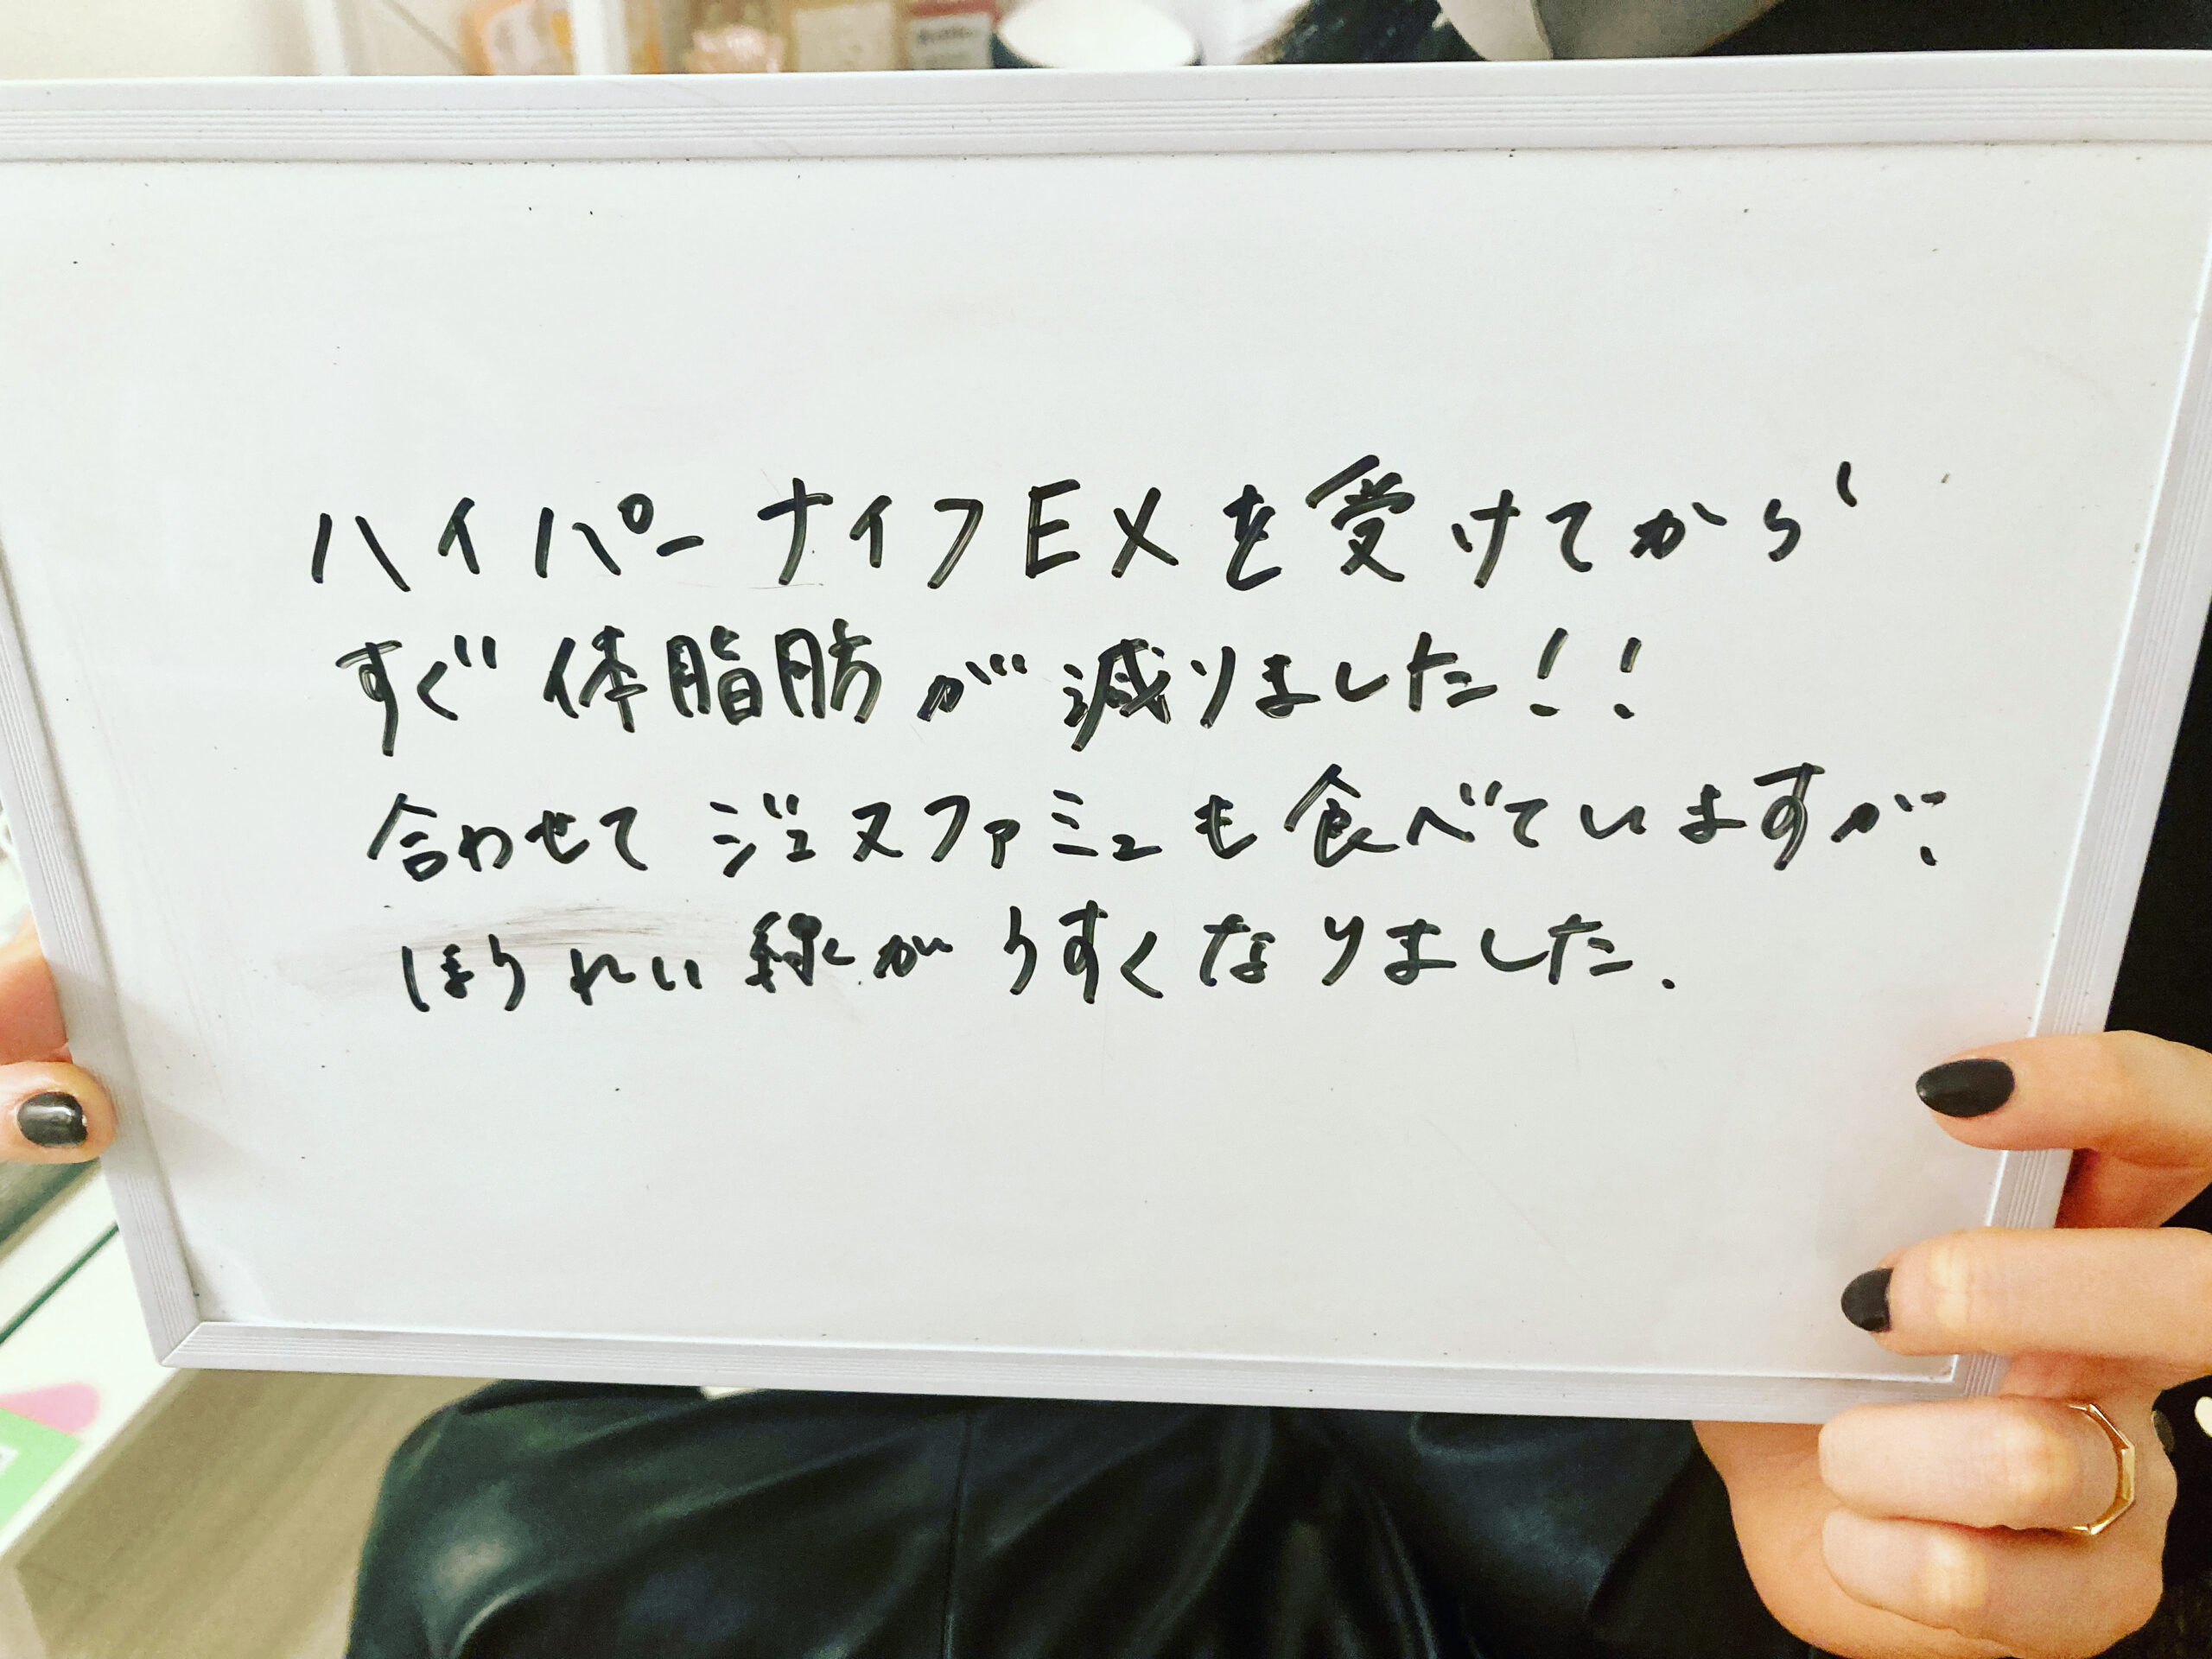 ハイパーナイフEXを受けてから、
すぐ体脂肪が減りました!!
合わせてジュヌファミュも食べていますが、
ほうれい線がうすくなりました.